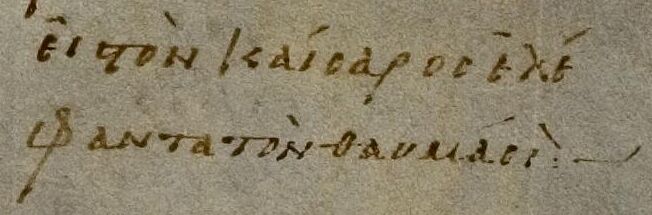 εἰ τὸν Καίσαρος ἐλέ
φαντα τὸν θαυμάσι: